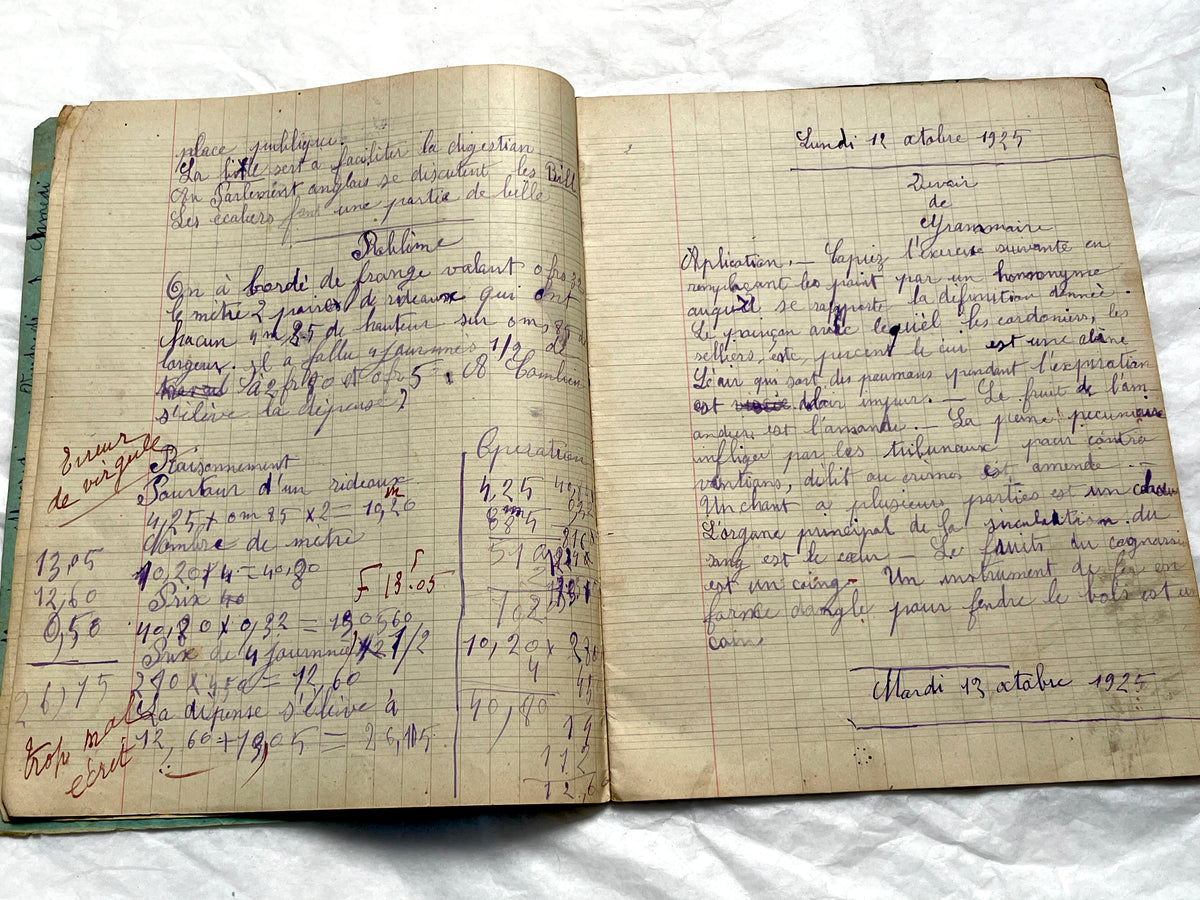 place publique.
La bile sert a faciliter la digestion
Au Parlement anglais se discutent les Bill
Les écoliers font une partie de bille
Problème
On à bordé de frange valant 0 fr 32
le mètre 2 paires d rideaux qui ont
chacun 4 m 25 de hauteur sur 0 m 85 de
largeur. Il a fallu 4 journnés 1/2 de
à 2 fr 80 et Combien
s'élève la dépense ?
Erreur
de virgule
Raisonnement
Opération
Pourtour d'un rideaux
4,25 + 0m 85 x 2 = 10,20
Nombre de mètre
13,05
10,20 x 4 = 40,80
12,60
Prix
F 13.05
0,50
40,80 x 0,32 = 130560
Prix de 4 journné 1/2
26,15
280 x 450 = 12,60
La dépense s'élève à
12,60 + 13,05 = 26,15
trop mal
écrit
4,25
510
702
10,20 x
4
40,80
112
Lundi 12 octobre 1925
Devoir
de
Grammaire
Aplication. — Copiez l'exercise suivante en
remplaçant les point par un hommonyme
auquel se rapporte la définition donnée.
Le poinçon avec lequel les cordoniers, les
selliers, etc, percent le cuir est une alène
L'air qui sort des poumons pendant l'expiration
est impur. — Le fruit de l'am
andier est l'amande. — La peine pecuniaire
infliger par les tribunaux pour contra
ventions, délit ou crèmes est amende —
Un chant a plusieurs parties est un
L'organe principal de la sirculation du
sang est le cœur — Les fruits du cognassi
est un coing — Un instrument de fer en
forme dangle pour fendre le bois est un
coin
Mardi 13 octobre 1925